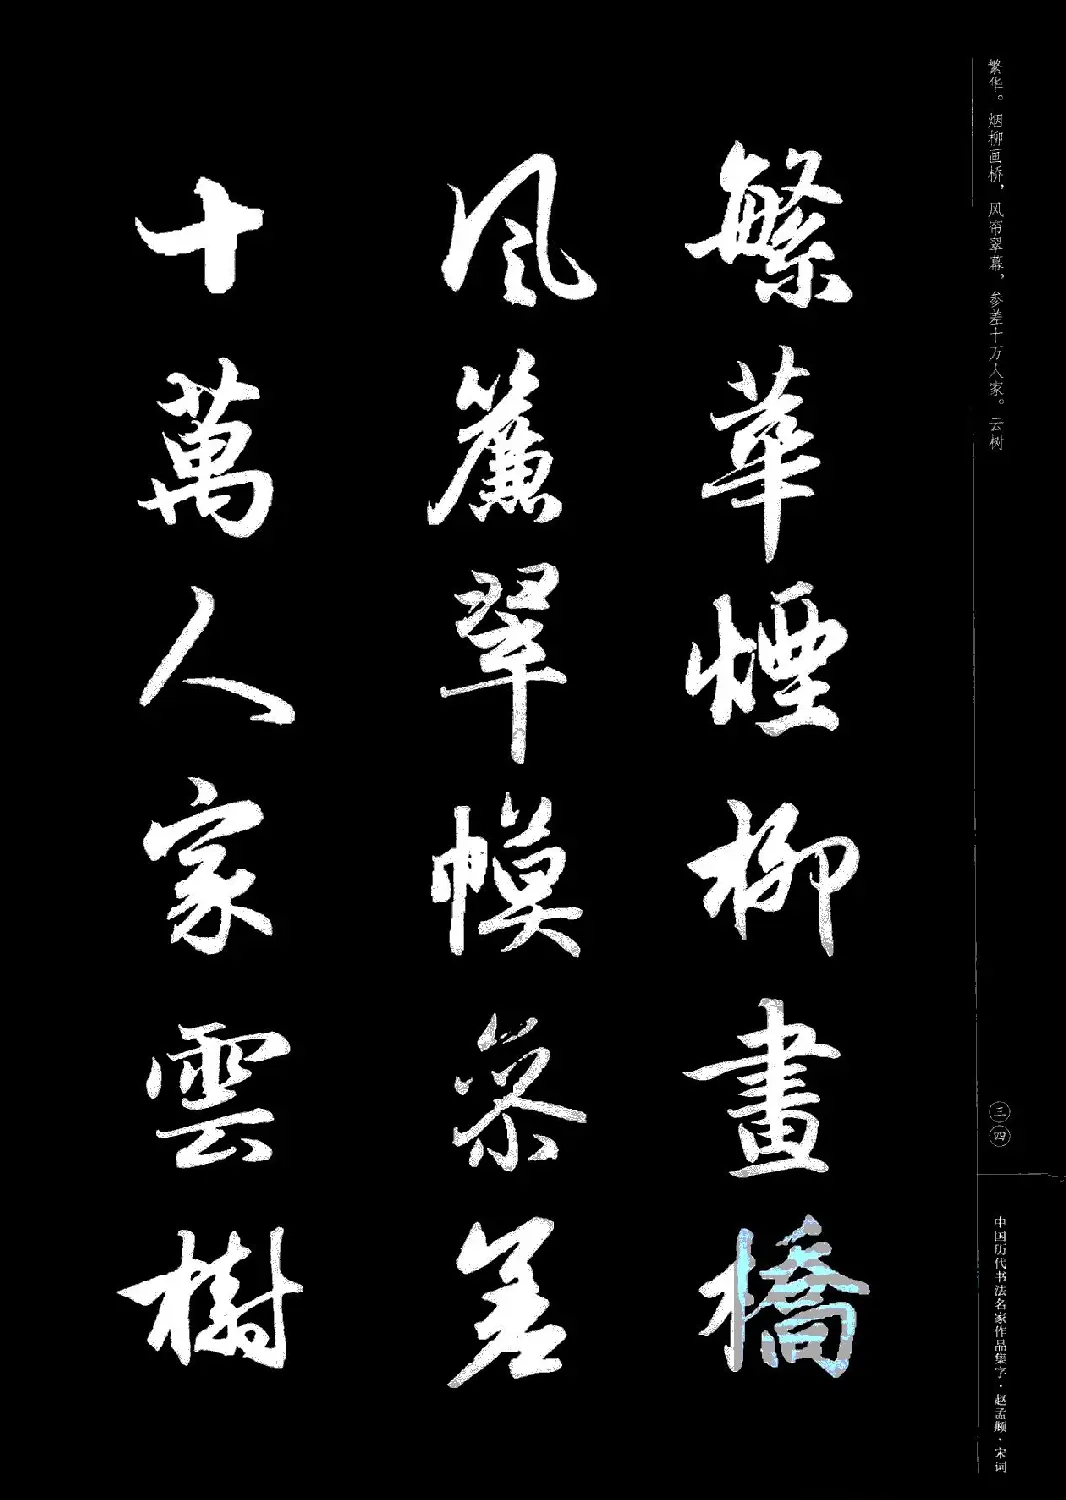 繁華煙柳畫橋
風簾翠幙參差
十萬人家雲樹
繁华。烟柳画桥，风帘翠幕，参差十万人家。云树
三四
中国历代书法名家作品集字·赵孟頫·宋词